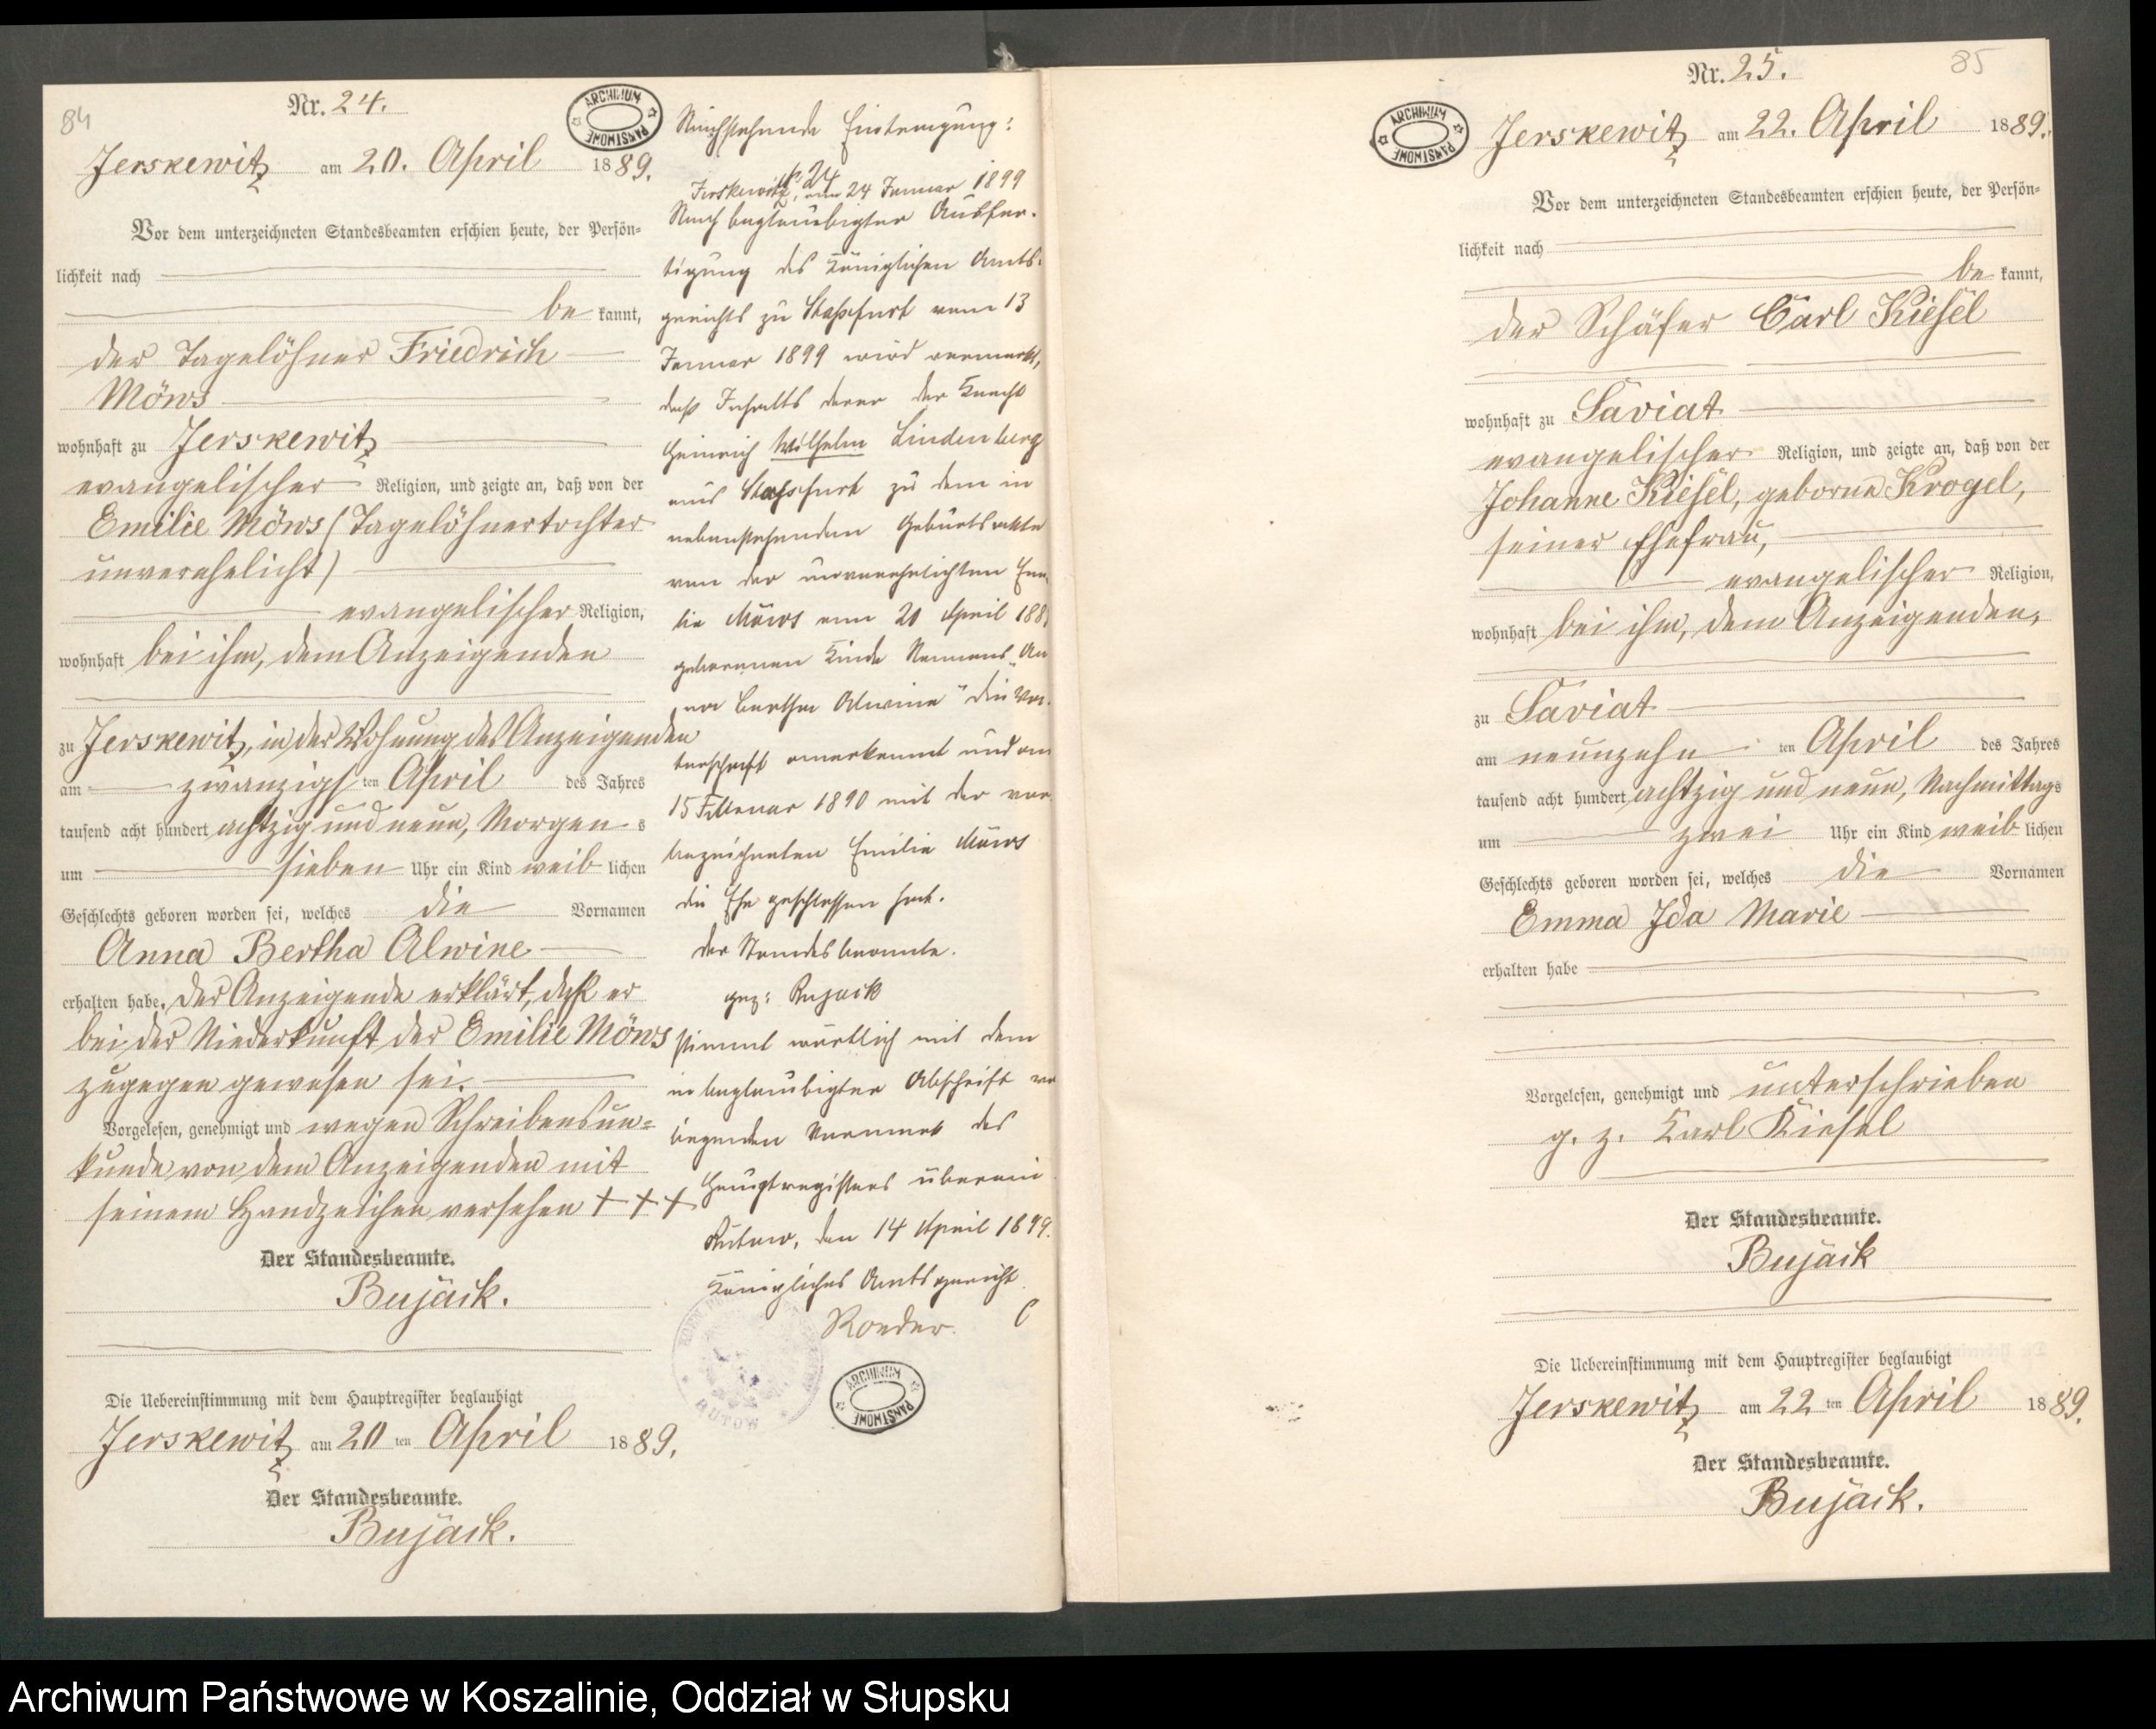 84
Nr. 24.
ARCHIWUM PAŃSTWOWE
Jerskewitz am 20. April 1889.
Vor dem unterzeichneten Standesbeamten erschien heute, der Persön-
lichkeit nach
be kannt,
der Tagelöhner Friedrich
Möws
wohnhaft zu Jerskewitz
evangelischer Religion, und zeigte an, daß von der
Emilie Möws (Tagelöhnertochter
unverehelicht)
evangelischer Religion,
wohnhaft bei ihm, dem Anzeigenden
zu Jerskewitz, in der Wohnung des Anzeigenden
am zwanzigs ten April des Jahres
tausend acht hundert achtzig und neun, Morgen s
um sieben Uhr ein Kind weib lichen
Geschlechts geboren worden sei, welches die Vornamen
Anna Bertha Alwine
erhalten habe. Der Anzeigende erklärt, daß er
bei der Niederkunft der Emilie Möws
zugegen gewesen sei.
Vorgelesen, genehmigt und wegen Schreibensun-
kunde von dem Anzeigenden mit
seinem Handzeichen versehen + + +
Der Standesbeamte.
Bujack.
Die Uebereinstimmung mit dem Hauptregister beglaubigt
Jerskewitz am 20 ten April 1889.
Der Standesbeamte.
Bujack.
Nachstehende Eintragung:
No 24
Jerskewitz, am 24 Januar 1899
Nach beglaubigter Ausfer-
tigung des Königlichen Amts-
gerichts zu Staßfurt vom 13
Januar 1899 wird vermerkt,
daß Inhalts derer der Knecht
Heinrich Wilhelm Lindenberg
aus Staßfurt zu dem in
nebenstehenden Geburtsakte
von der unverehelichten Emi-
lie Möws am 20 April 188
geborenen Kinde Namens "An
na Bertha Alwine" die Va-
terschaft anerkannt und am
15 Februar 1890 mit der vor
bezeichneten Emilie Möws
die Ehe geschlossen hat.
Der Standesbeamte.
gez: Bujack
stimmt wörtlich mit dem
in beglaubigter Abschrift vor
liegenden Vermerk des
Hauptregisters überein
Bütow, den 14 April 1899.
Königliches Amtsgericht
Roeder.
BÜTOW
ARCHIWUM PAŃSTWOWE
85
Nr. 25.
ARCHIWUM PAŃSTWOWE
Jerskewitz am 22. April 1889.
Vor dem unterzeichneten Standesbeamten erschien heute, der Persön-
lichkeit nach
be kannt,
der Schäfer Carl Kiesel
wohnhaft zu Saviat
evangelischer Religion, und zeigte an, daß von der
Johanne Kiesel, geborne Krogel,
seiner Ehefrau,
evangelischer Religion,
wohnhaft bei ihm, dem Anzeigenden,
zu Saviat
am neunzehn ten April des Jahres
tausend acht hundert achtzig und neun, Nachmittag s
um zwei Uhr ein Kind weib lichen
Geschlechts geboren worden sei, welches die Vornamen
Emma Ida Marie
erhalten habe
Vorgelesen, genehmigt und unterschrieben
g. z. Karl Kiesel
Der Standesbeamte.
Bujack
Die Uebereinstimmung mit dem Hauptregister beglaubigt
Jerskewitz am 22 ten April 1889.
Der Standesbeamte.
Bujack.
Archiwum Państwowe w Koszalinie, Oddział w Słupsku